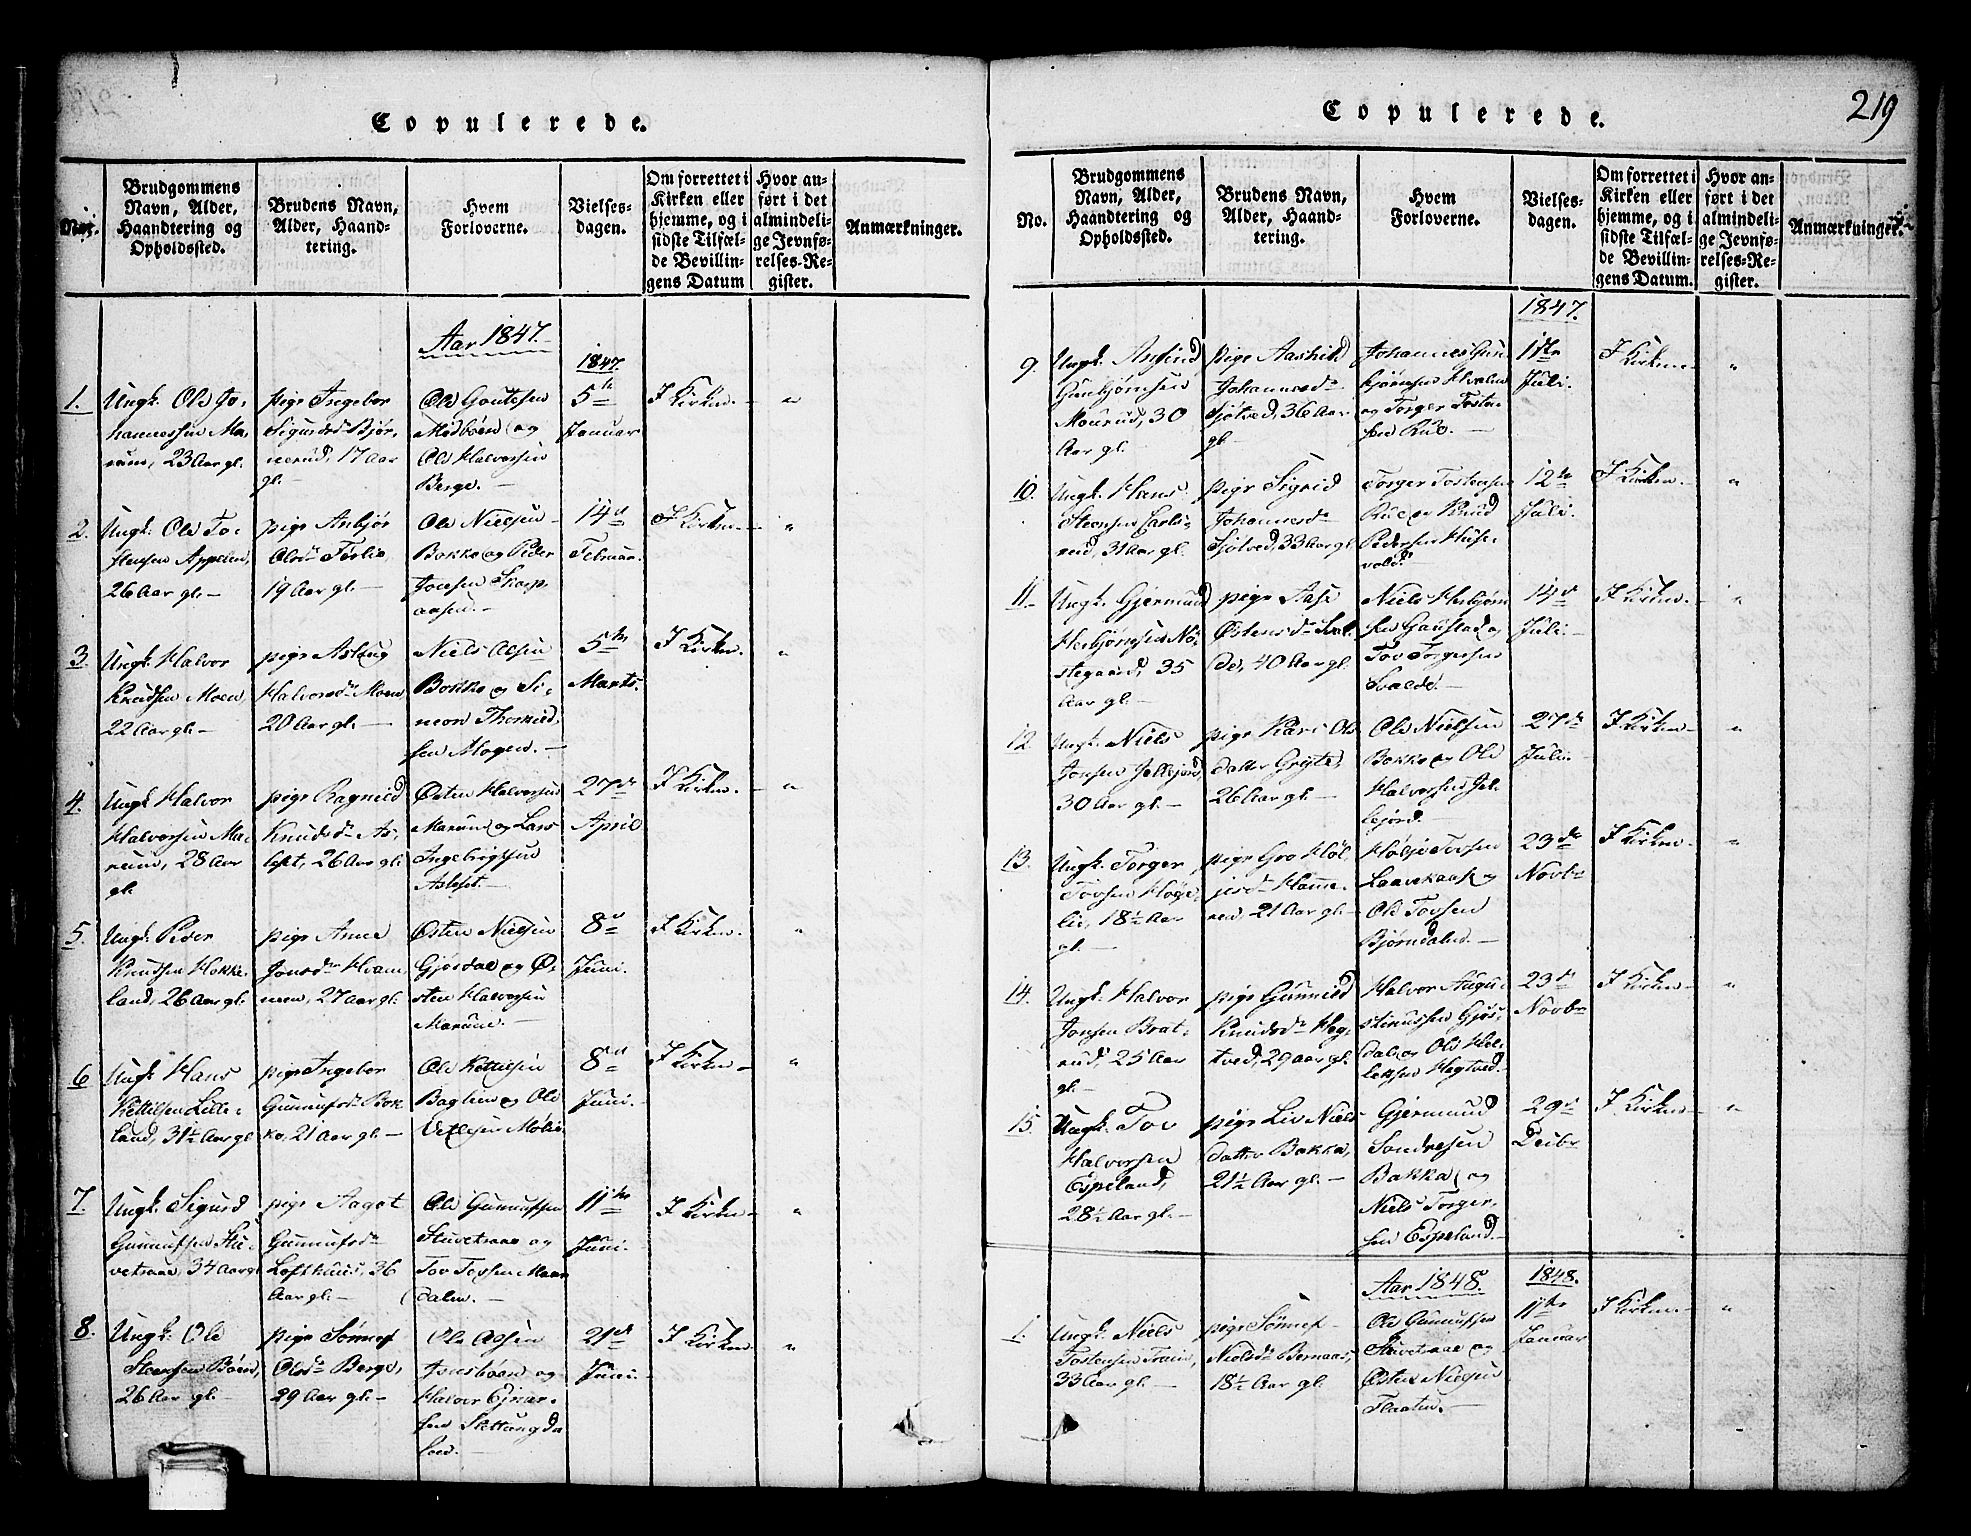 Copulerede.
No.
Brudgommens
Navn, Alder,
Haandtering og
Opholdssted.
Brudens Navn,
Alder, Haand-
tering.
Hvem
Forloverne.
Vielses-
dagen.
Om forrettet i
Kirken eller
hjemme, og i
sidste Tilfæl-
de Bevillin-
gens Datum
Hvor an-
ført i det
almindeli-
ge Jevnfø-
relses-Re-
gister.
Anmærkninger.
Aar 1847.
1847.
1.
Ungk. Ole Jo-
hannessen Ma-
rum, 23 Aar gl.
pige Ingebor
Sigursd. Bjør-
nerud, 17 Aar
gl.
Ole Goutesen
Midbøen og
Ole Halvorsen
Berge.
5te
Januar
I Kirken.
"
2.
Ungk. Ole To-
stensen Appelen,
26 Aar gl.
pige Anbjør
Olsdr
19 Aar gl.
Ole Nielsen
Bakke og Peder
14de
Februar.
I Kirken.
"
3.
Ungk. Halvor
Knudsen Moen,
22 Aar gl.
pige Aslaug
Halvorsdr Moen
20 Aar gl.
Niels Olsen
Bakke og Si-
meon Thorkild-
sen Mogen.
5te
Marts.
I Kirken.
"
4.
Ungk. Halvor
Halvorsen Ma-
rum, 28 Aar
gl.
pige Ragnild
Knudsdr As-
lest, 26 Aar gl.
Østen Halvorsen
Marum og Lars
Ingebrigtsen
27de
April
I Kirken.
"
5.
Ungk. Peder
Knudsen Hokke-
land, 26 Aar gl.
pige Anne
Jonsdr Kvam-
men, 27 Aar gl.
Østen Nielsen
Gjøsdal og Ø-
sten Halvorsen
Marum.
8de
Juni.
I Kirken.
"
6
Ungk. Hans
Kettilsen Lille-
land, 31½ Aar gl
pige Ingebor
Gunnufsdr Bak
ke, 21 Aar gl.
Ole Kettilsen
Baglien og Ole
Vetlesen Mølie
8de
Juni.
I Kirken
"
7.
Ungk. Sigurd
Gunnufsen Stu-
vetraae, 34 Aar gl
pige Aagot
Gunnufsdr
Lofthuus, 36
Aar gl.
Ole Gunnufsen
Stuvetraae og
Tov Tovsen Maar
dalen.
11te
Juni.
I Kirken
"
8.
Ungk. Ole
Steensen Bøen,
26 Aar gl.
pige Sønnef
Olsdr Berge,
29 Aar gl.
Ole Olsen
og
Halvor Ejnar-
sen
21de
Juni.
I Kirken
"
219
Copulerede.
No.
Brudgommens
Navn, Alder,
Haandtering og
Opholdssted.
Brudens Navn,
Alder, Haand-
tering.
Hvem
Forloverne.
Vielses-
dagen.
Om forrettet i
Kirken eller
hjemme, og i
sidste Tilfæl-
de Bevillin-
gens Datum.
Hvor an-
ført i det
almindeli-
ge Jevnfø-
relses-Re-
gister.
Anmærkninger.
1847.
9.
Ungk. Anfind
Gunbjørnsen
Mourud, 30
Aar gl.
pige Aashild
Johannesdr
Sjøtved, 36 Aar
gl.
Johannes Gun-
bjørnsen
og Torger Tosten-
sen Rue.
1ste
Juli.
I Kirken
"
10.
Ungk. Hans
Steensen Carls-
rud, 31 Aar gl.
pige Sigrid
Johannesdr
Sjøtved, 33 Aar gl
Torger Tostensen
Rue og Knud
Pedersen Huse-
vold.
12te
Juli.
I Kirken.
"
11.
Ungk. Gjermund
Herbjørnsen Nø-
stegaard, 35
Aar gl.
pige Aase
Østensdr Sval-
de, 40 Aar gl.
Niels Herbjørn
sen Gaustad og
Tov Torgersen
Svalde.
14de
Juli.
I Kirken.
"
12.
Ungk. Niels
Jonsen Jallejord,
30 Aar gl.
pige Kari Ols
datter Grøjte,
26 Aar gl.
Ole Nielsen
Bakke og Ole
Halvorsen Jal-
lejord.
27de
Juli.
I Kirken
"
13.
Ungk. Torger
Tovsen Høge-
lie, 18½ Aar
gl.
pige Gro Høl-
jesdr Hamme-
ren, 21 Aar gl.
Hølje Tovsen
Laavekaas og
Ole Tovsen
Bjørndalen.
23de
Novbr
I Kirken.
"
14.
Ungk. Halvor
Jonsen Brat-
rud, 25 Aar
gl.
pige Gunnild
Knudsdr Hag-
tved, 29 Aar gl.
Halvor Augu-
stinussen Gjøs-
dal og Ole Hel-
leksen Hagtved.
23de
Novbr
I Kirken
"
15.
Ungk. Tov
Halvorsen
Espeland,
28½ Aar gl.
pige Liv Niels
datter Bakka,
21½ Aar gl.
Gjermund
Sondresen
Bakka og
Niels Torger-
sen Espeland.
29de
Decbr
I Kirken
"
Aar 1848.
1848.
1.
Ungk. Niels
Tostensen Traen,
33 Aar gl.
pige Sønnef
Nielsdr Bernaas,
18½ Aar gl.
Ole Gunnufsen
Stuvetraae og
Østen Nielsen
Flaaten.
11te
Januar
I Kirken
"